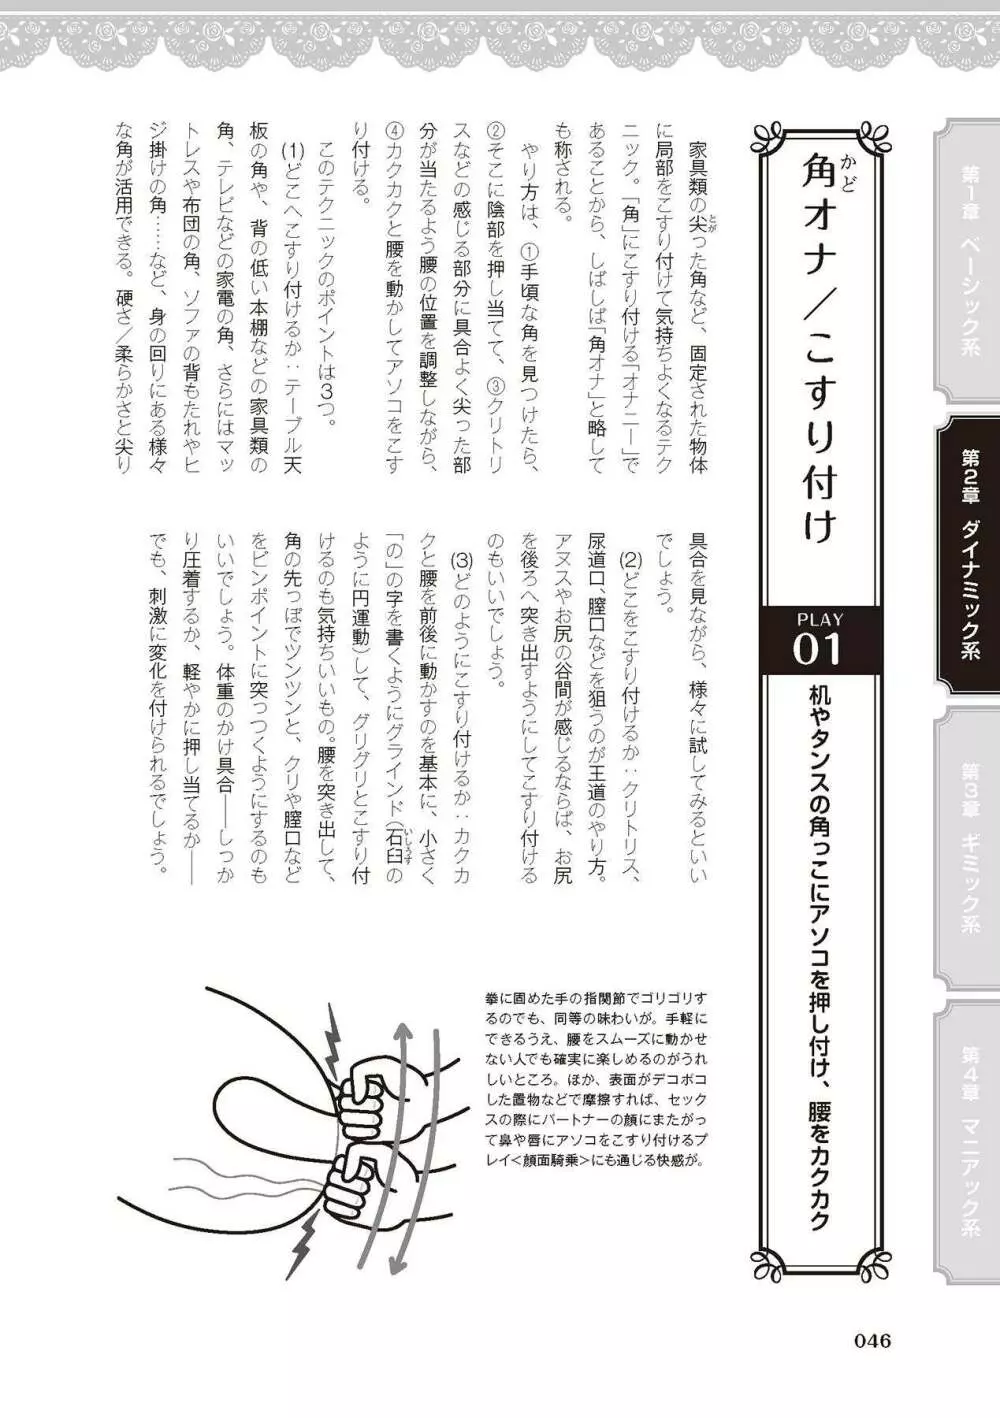 第1章 ベーシック系
第2章 ダイナミック系
第3章 ギミック系
第4章 マニアック系
角オナ／こすり付け
かど
PLAY
01
机やタンスの角っこにアソコを押し付け、腰をカクカク
家具類の尖った角など、固定された物体
とが
に局部をこすり付けて気持ちよくなるテク
ニック。「角」にこすり付ける「オナニー」で
あることから、しばしば「角オナ」と略して
も称される。
やり方は、①手頃な角を見つけたら、
②そこに陰部を押し当てて、③クリトリ
スなどの感じる部分に具合よく尖った部
分が当たるよう腰の位置を調整しながら、
④カクカクと腰を動かしてアソコをこす
り付ける。
このテクニックのポイントは3つ。
(1)どこへこすり付けるか：テーブル天
板の角や、背の低い本棚などの家具類の
角、テレビなどの家電の角、さらにはマッ
トレスや布団の角、ソファの背もたれやヒ
ジ掛けの角……など、身の回りにある様々
な角が活用できる。硬さ／柔らかさと尖り
具合を見ながら、様々に試してみるといい
でしょう。
(2)どこをこすり付けるか：クリトリス、
尿道口、膣口などを狙うのが王道のやり方。
アヌスやお尻の谷間が感じるならば、お尻
を後ろへ突き出すようにしてこすり付ける
のもいいでしょう。
(3)どのようにこすり付けるか：カクカ
クと腰を前後に動かすのを基本に、小さく
「の」の字を書くようにグラインド（石臼の
いしうす
ように円運動）して、グリグリとこすり付
けるのも気持ちいいもの。腰を突き出して、
角の先っぽでツンツンと、クリや膣口など
をピンポイントに突っつくようにするのも
いいでしょう。体重のかけ具合――しっか
り圧着するか、軽やかに押し当てるか――
でも、刺激に変化を付けられるでしょう。
拳に固めた手の指関節でゴリゴリす
るのでも、同等の味わいが。手軽に
できるうえ、腰をスムーズに動かせ
ない人でも確実に楽しめるのがうれ
しいところ。ほか、表面がデコボコ
した置物などで摩擦すれば、セック
スの際にパートナーの顔にまたがっ
て鼻や唇にアソコをこすり付けるプ
レイ<顔面騎乗>にも通じる快感が。
046